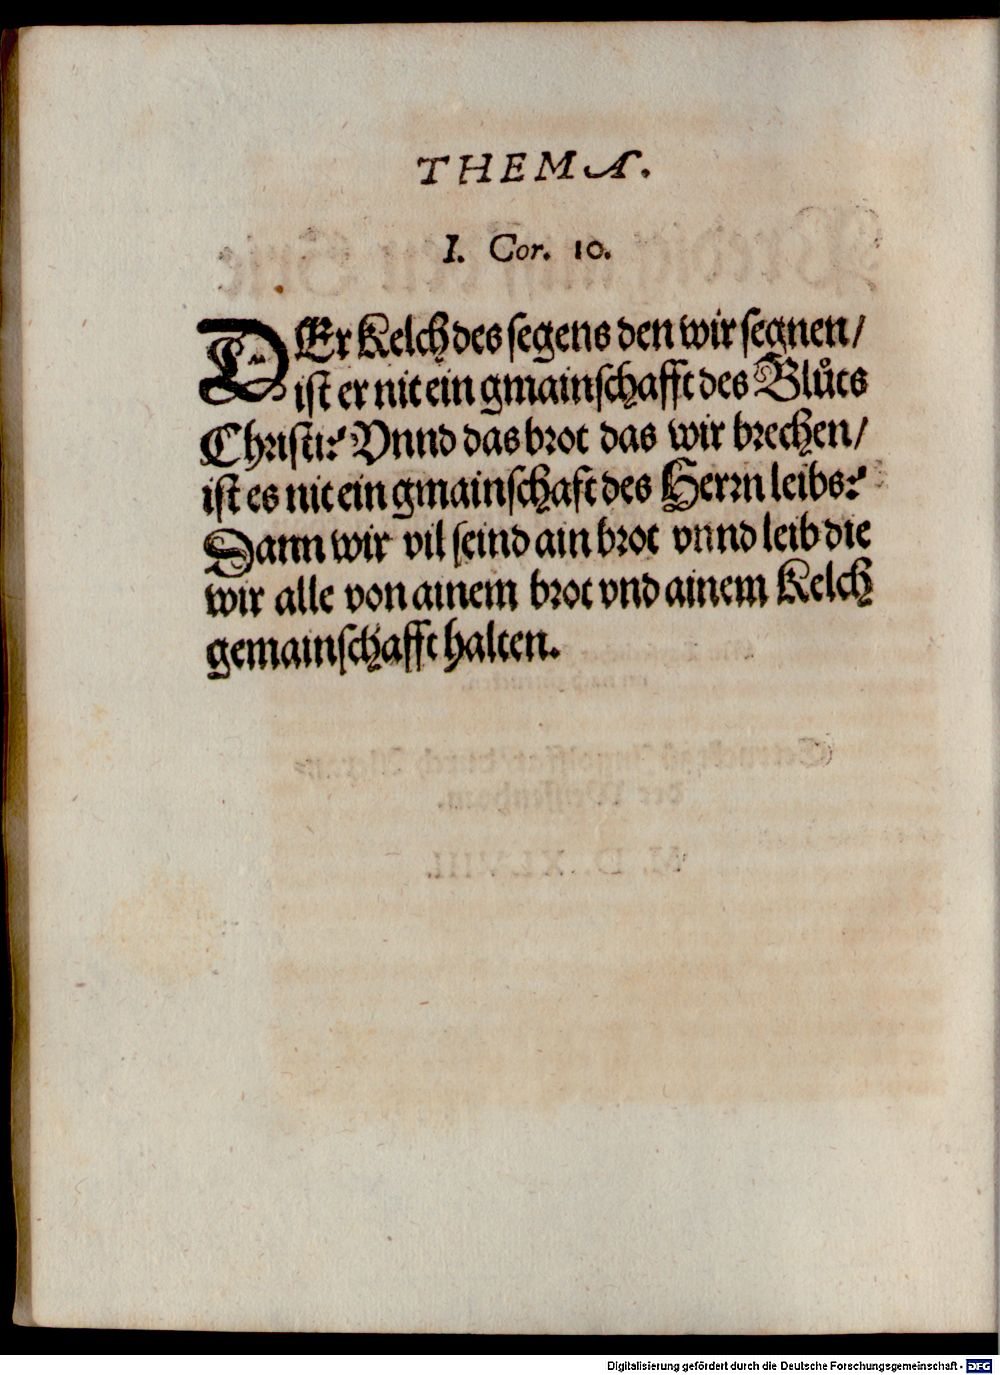 THEMA.
I. Cor. 10.
DEr Kelch des segens den wir segnen/
ist er nit ein gmainschafft des Blůts
Christi? Vnnd das brot das wir brechen/
ist es nit ein gmainschaft des Herrn leibs?
Dann wir vil seind ain brot vnnd leib die
wir alle von ainem brot vnd ainem Kelch
gemainschafft halten.
Digitalisierung gefördert durch die Deutsche Forschungsgemeinschaft - DFG